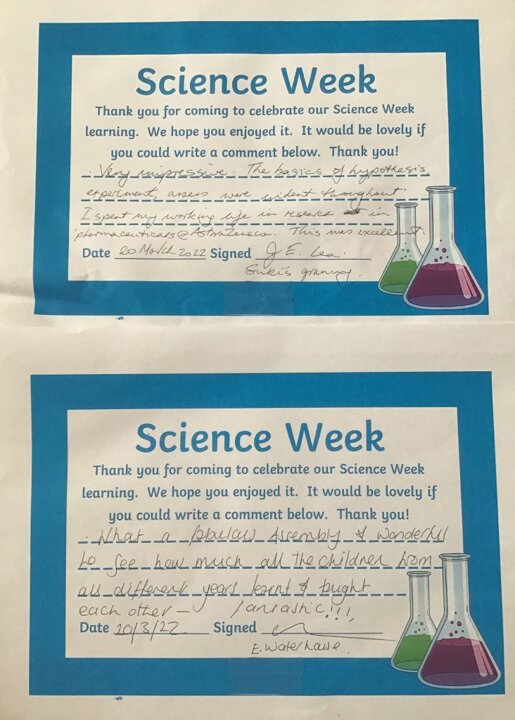 Science Week
Thank you for coming to celebrate our Science Week
learning. We hope you enjoyed it. It would be lovely if
you could write a comment below. Thank you!
Very impressive. The basics of hypothesis
experiment, assess were evident throughout.
I spent my working life in research in
pharmaceuticals @ AstraZeneca. This was excellent.
Date 20 March 2022 Signed J E. Lea.
granny.
Science Week
Thank you for coming to celebrate our Science Week
learning. We hope you enjoyed it. It would be lovely if
you could write a comment below. Thank you!
What a fabulous Assembly & wonderful
to see how much all the children from
all different years learnt & taught
each other - fantastic!!!
Date 10/3/22 Signed
E. Waterhouse.